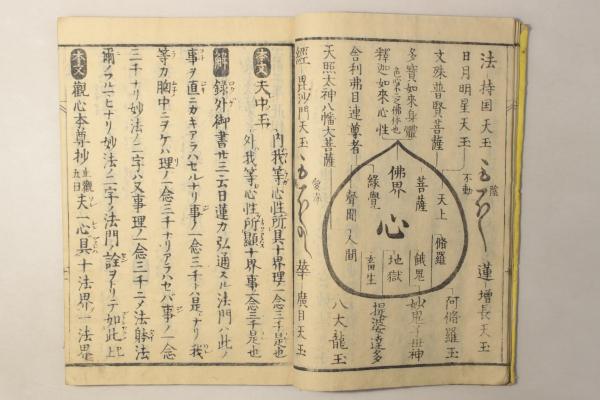 法 持国天玉
日月明星天玉
文殊普賢菩薩
多寳如来身軆
色心不二ノ佛体也
釋迦如来心性
舎利弗目連尊者
天照太神八幡大菩薩
經 毘沙門天玉
不動
愛染
蓮 増長天玉
華 廣目天玉
佛界
心
菩薩
縁覺
聲聞
天上
人間
脩羅
餓鬼
地獄
畜生
阿脩羅玉
提婆達多
八大龍玉
本文 天中玉
内我等心性所具十界理ノ一念三千是也
外我等心性所顯十界事ノ一念三千是也
解 録外御書廿三云日蓮カ弘通スル法門ハ此ノ
事ヲ直ニカキアラハセルナリ事ノ一念三千トハ是ナリ我
等カ胸中ニヲケハ理ノ一念三千ナリアラハセハ事ノ一念
三千ナリ妙法ノ二字ハ又事理ノ一念三千ニノ法躰法
爾ノフルマヒナリ妙法ノ二字ノ法門ノ詮ヲトリテ如此 上巳
本文 觀心本尊抄 止觀五曰 夫一心具十法界一法界